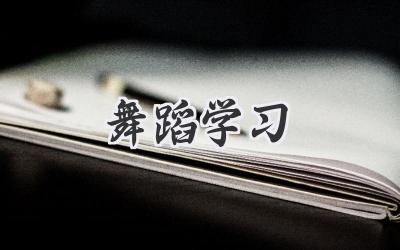 舞蹈学习